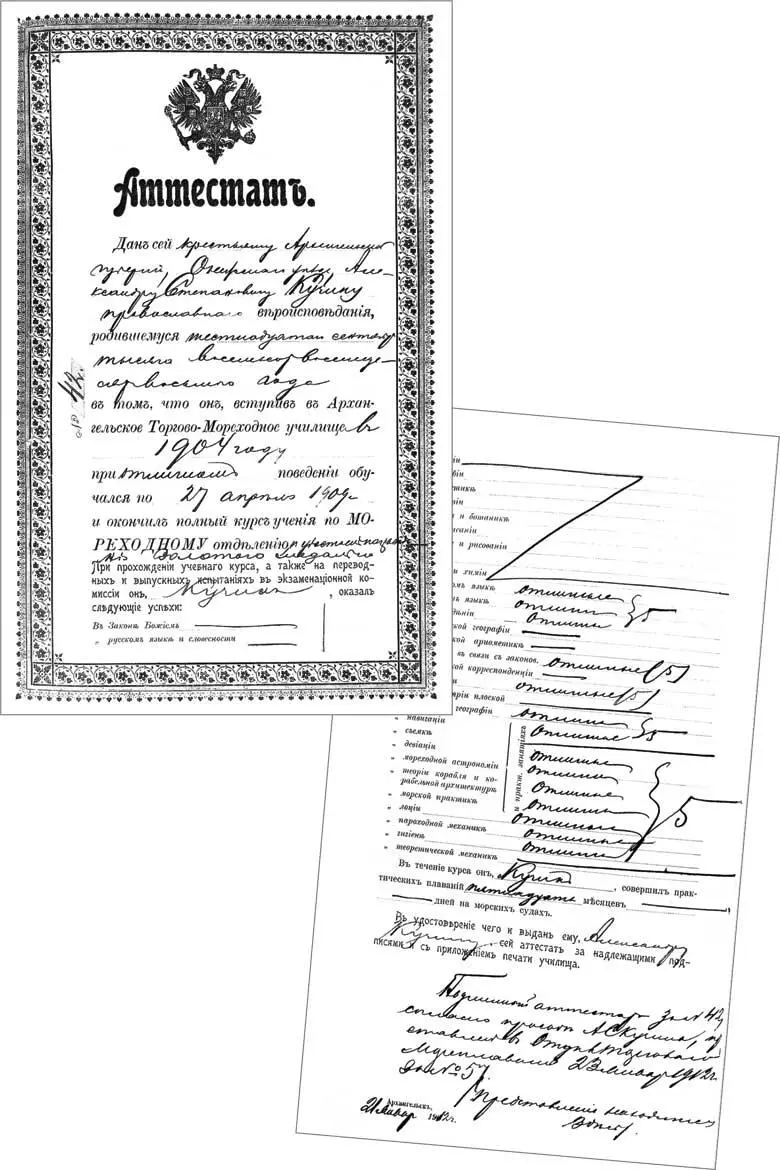 Аттестатъ.
Данъ сей крестьянину Архангельской
губернiи, Онежскаго уѣзда, Але-
ксандру Степановичу Кучину
православнаго вѣроисповѣданiя,
родившемуся шестнадцатаго сентября
тысяча восемьсотъ восемьде-
сятъ восьмого года
№ 42.
въ томъ, что онъ, вступивъ въ Архан-
гельское Торгово-Мореходное училище въ
1904 году
при отличномъ поведенiи обу-
чался по 27 апрѣля 1909 г.
и окончилъ полный курсъ ученiя по МО-
РЕХОДНОМУ отдѣленiю
золотого медалью
При прохожденiи учебнаго курса, а также на перевод-
ныхъ и выпускныхъ испытанiяхъ въ экзаменацiонной ко-
миссiи онъ, Кучинъ, оказалъ
слѣдующiе успѣхи:
Въ Законѣ Божiемъ
„ русскомъ языкѣ и словесности
и ботаникѣ
и рисованiи
химiи
омъ языкѣ отличные } 5
языкѣ отличные
отличные
ской географiи
ской ариѳметикѣ
въ связи съ законов. отличные (5)
ской корреспонденцiи
отличные (5)
трiи плоской
географiи отличные } 5
„ навигацiи отличные
„ съемкѣ
„ девiацiи отличные
„ мореходной астрономiи отличные
„ теорiи корабля и ко-
рабельной архитектурѣ отличные
и практ. занятiяхъ
„ морской практикѣ отличные } 5
„ лоцiи отличные
„ пароходной механикѣ отличные
„ гигiенѣ отличные
„ теоретической механикѣ
Въ теченiе курса онъ, Кучинъ, совершилъ прак-
тическихъ плаванiй пятнадцать мѣсяцевъ
дней на морскихъ судахъ.
Въ удостовѣренiе чего и выданъ ему, Александру
Кучину, сей аттестатъ за надлежащими под-
писями и съ приложенiемъ печати училища.
Подлинный аттестатъ за № 42,
согласно просьбѣ А. С. Кучина, пред-
ставленъ въ Отдѣлъ Торговаго
Мореплаванiя 23 января 1912 г.
за № 57
Представленiе находится
въ дѣлѣ
Архангельскъ,
21 января 1912 г.